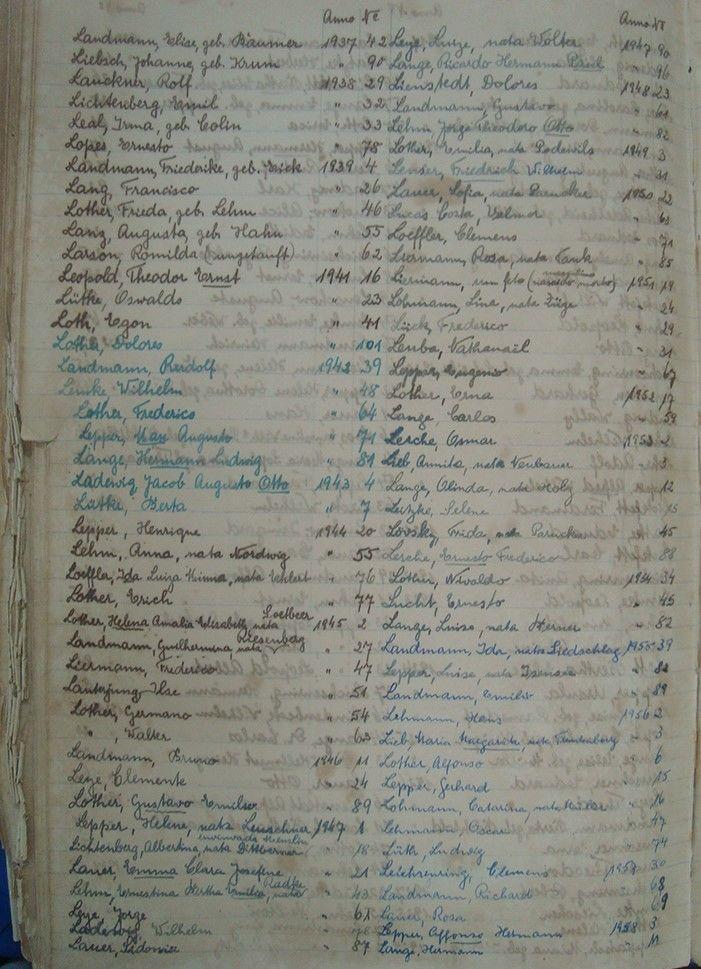 Anno Nr.
Landmann, Elise, geb. Bäumer 1937 42
Liebsch, Johanne, geb. Krum " 90
Lauckner, Rolf 1938 29
Lichtenberg, Emil " 32
Leal, Irma, geb. Colin " 33
Lopes, Ernesto " 78
Landmann, Friederike, geb. 1939 4
Lang, Francisco " 26
Lother, Frieda, geb. Lehm " 46
Lanz, Augusta, geb. Hahn " 55
Larson, Romilda (ungetauft) " 62
Leopold, Theodor Ernst 1941 16
Lütke, Oswaldo " 23
Loth, Egon " 41
Lother, Dolores " 101
Landmann, Rudolf 1942 39
Lemke, Wilhelm " 48
Lother, Frederico " 64
Lepper, Max Augusto " 71
Lange, Hermann Ludwig " 81
Ladewig, Jacob Augusto Otto 1943 4
Lütke, Berta " 7
Lepper, Henrique 1944 20
Lehm, Anna, nata Nordwig " 55
Loeffler, Ida Luiza Minna, nata Ehlert " 76
Lother, Erich " 77
Lother, Helena Amalia Elisabeth, nata Loetbeer 1945 2
Landmann, Guilhermina, nata Riesenberg " 27
Liermann, Frederico " 47
Lauterjung, Ilse " 51
Lother, Germano " 54
" , Walter " 63
Landmann, Bruno 1946 11
Leye, Clemente " 24
Lother, Gustavo Emilio " 89
Lepper, Helene, nata Leuschner 1947 1
Lichtenberg, Albertina, nata Dittberner " 18
Lauer, Emma Clara Josefine " 21
Lehm, Ernestina Bertha Emilia, nata Radtke " 43
Leye, Jorge " 61
Ladewig, Wilhelm " 78
Lauer, Sidonia " 87
Anno Nr.
Leye, Luize, nata Wolter 1947 90
Lange, Ricardo Hermann Paul " 96
Lienstedt, Dolores 1948 23
Landmann, Gustavo " 61
Lehm, Jorge Theodoro Otto " 82
Lother, Emilia, nata Podewils 1949 3
Friedrich Wilhelm " 31
Lauer, Sofia, nata 1950 22
Lucas Costa, Valmor " 63
Loeffler, Clemens " 71
Liermann, Rosa, nata Tank " 85
Liermann, um feto (nascido morto) masculino 1951 19
Lohmann, Lina, nata " 24
Lück, Frederico " 29
Leuba, Nathanaël " 31
Lepper, Eugenio " 67
Lother, Erna 1952 17
Lange, Carlos " 59
Lerche, Osmar 1953 2
Lieb, Annita, nata Neubauer " 3
Lange, Olinda, nata Holz " 12
Letzke, Selene " 15
Lovsky, Frida, nata " 45
Lerche, Ernesto Frederico " 88
Lother, Nivaldo 1954 34
Lucht, Ernesto " 45
Lange, Luise, nata Herner " 82
Landmann, Ida, nata Liedschlag 1955 39
Lepper, Luise, nata Isensee " 82
Landmann, Emilio " 89
Lehmann, Hans 1956 2
Lieb, Maria Margarida, nata " 3
Lother, Alfonso " 6
Lepper, Gerhard " 15
Lohmann, Catarina, nata Müller " 16
Lehmann, Oscar " 47
Lüth, Ludwig " 74
Clemens 1957 30
Landmann, Richard " 68
Lauer, Rosa " 69
Lepper, Affonso Hermann 1958 3
Lange, Hermann " 11